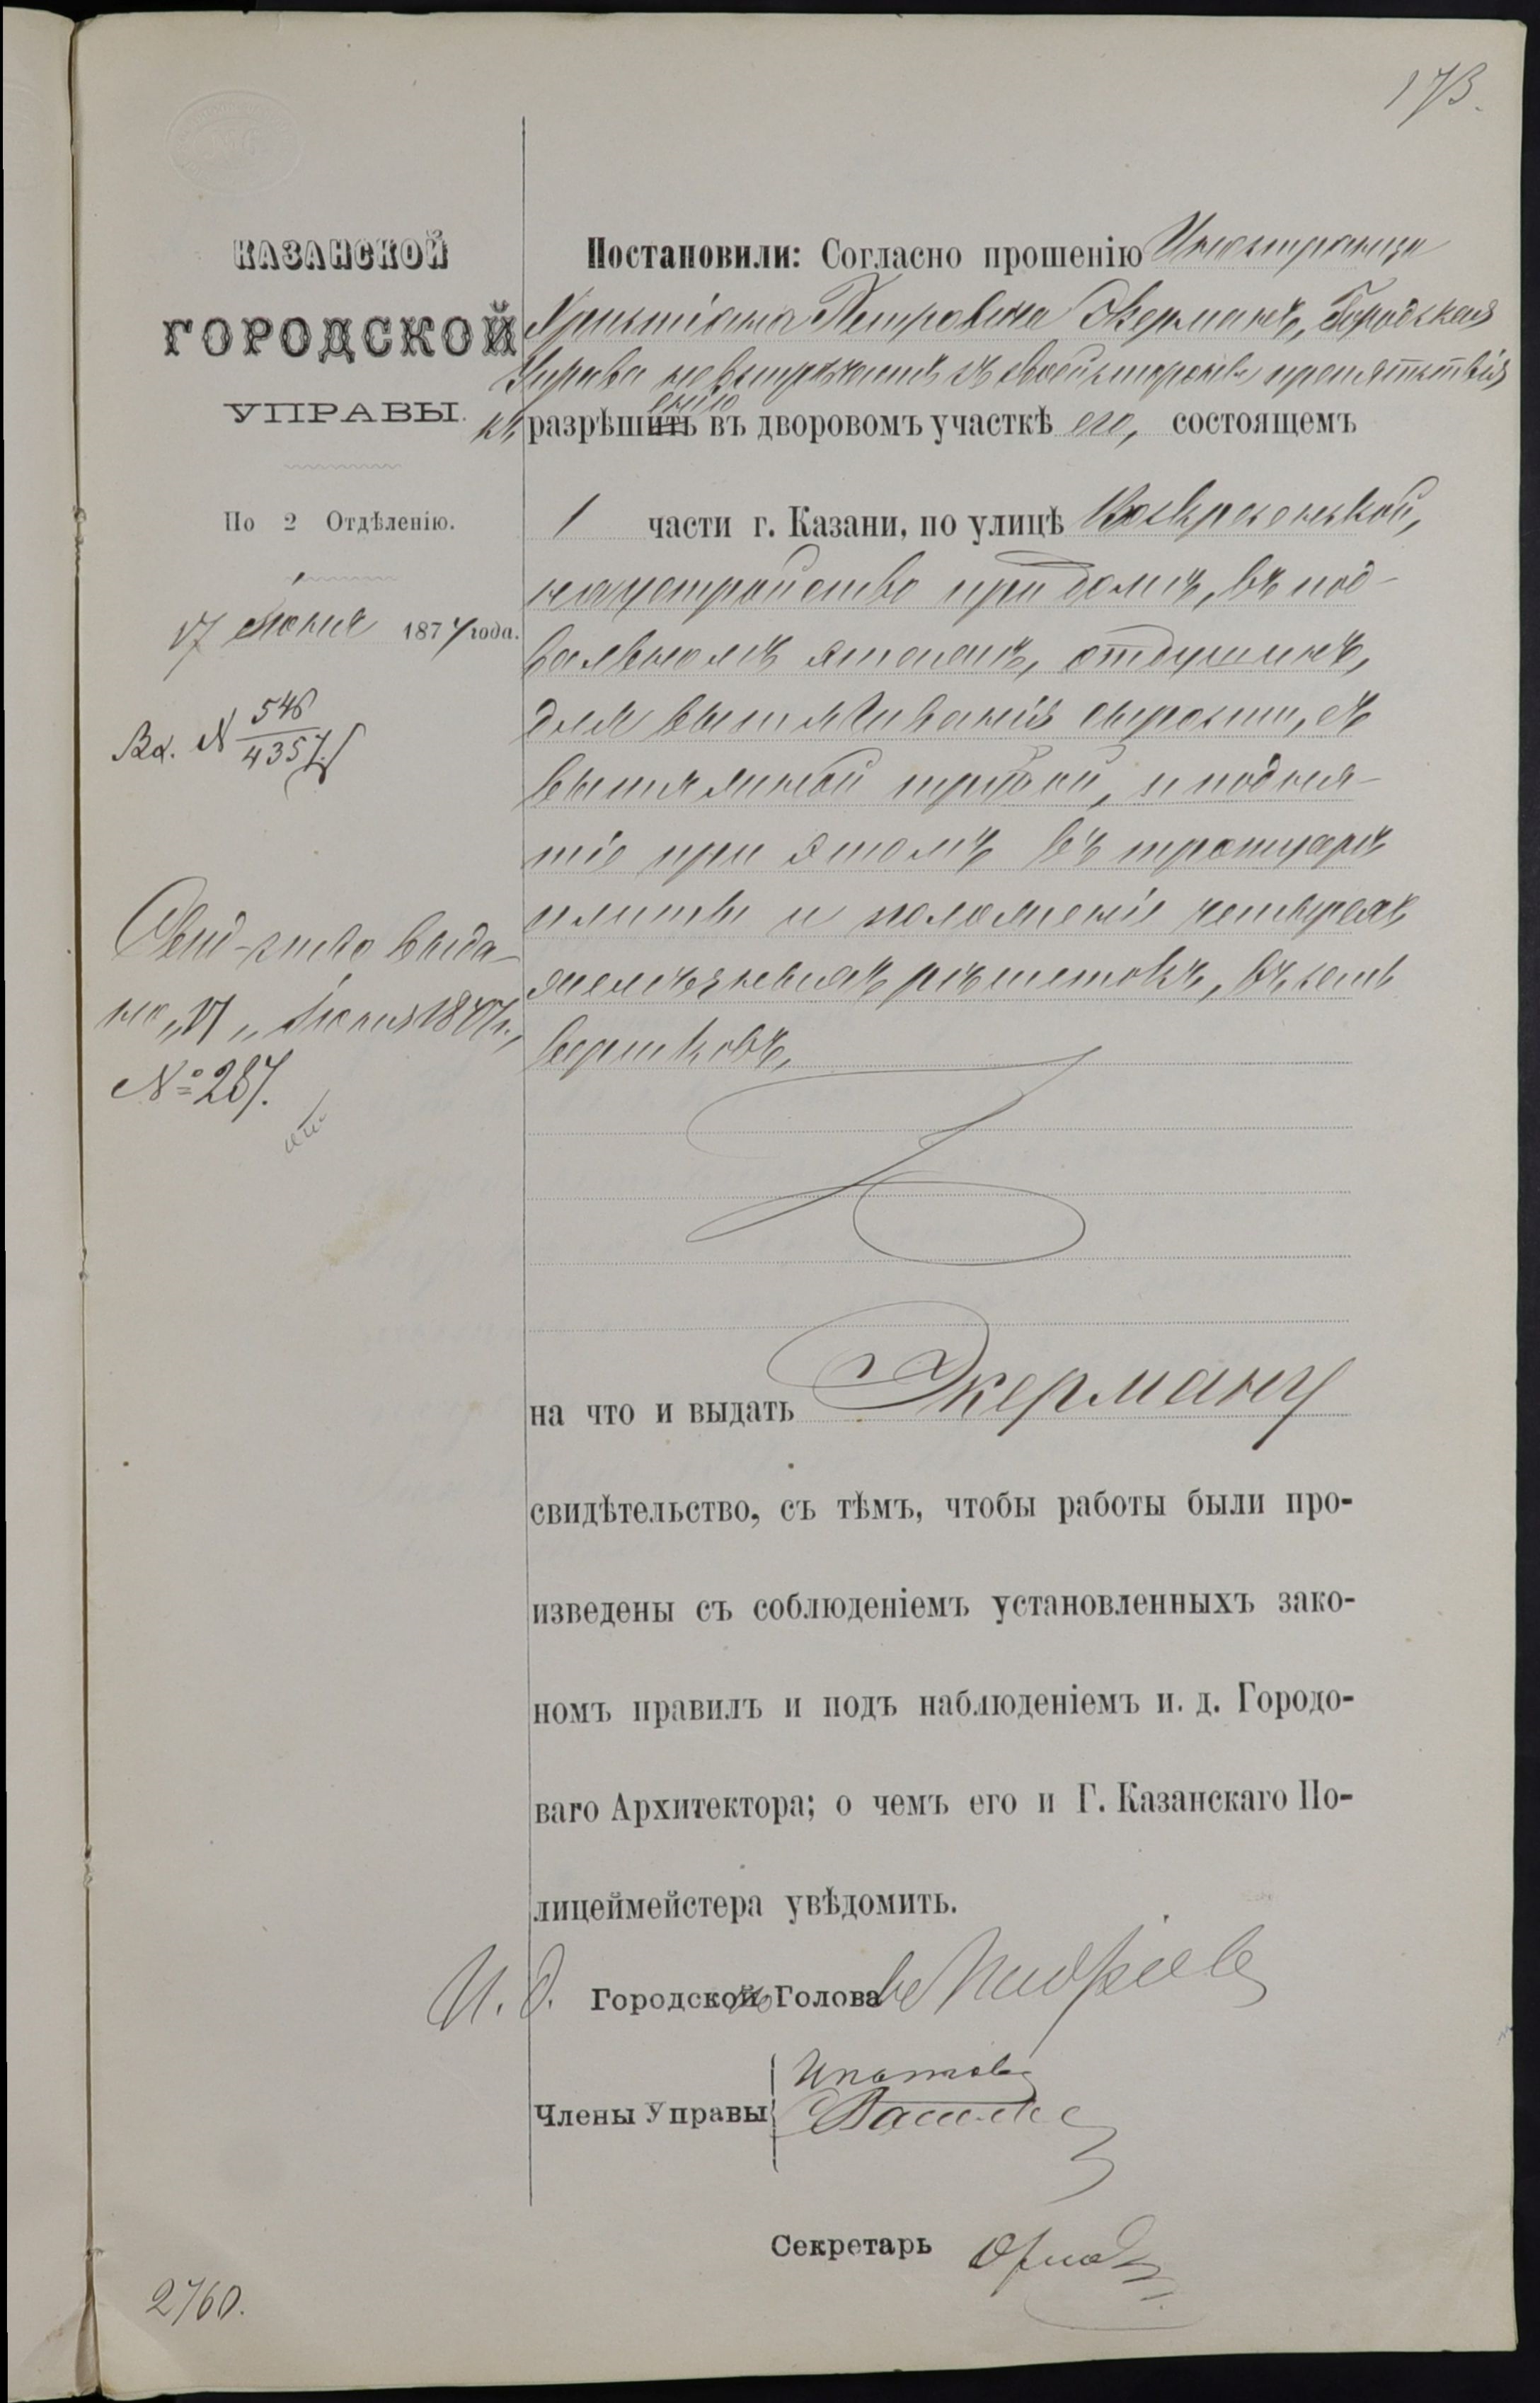 173.
КАЗАНСКОЙ
ГОРОДСКОЙ
УПРАВЫ.
По 2 Отдѣленію.
17 Іюня 1874 года.
Вх. № 546
4357
Свид-ство выда-
но „17„ Іюня 1874 г.,
№ 287.
Постановили: Согласно прошенію Иностранца
Христіана Петровича Экерманъ, Городская
Управа не встрѣчаетъ съ своей стороны препятствія
къ разрѣшенію въ дворовомъ участкѣ его, состоящемъ
1 части г. Казани, по улицѣ Воскресенской,
на устройство при домѣ, въ под-
вальномъ этажѣ, отдушинъ,
для вытягиванія сырости, съ
вытяжной трубой, и подня-
тіе при этомъ въ тротуарѣ
плиты и положеніе четырехъ
желѣзныхъ рѣшетокъ, въ семь
вершковъ,
на что и выдать Экерману
свидѣтельство, съ тѣмъ, чтобы работы были про-
изведены съ соблюденіемъ установленныхъ зако-
номъ правилъ и подъ наблюденіемъ и. д. Городо-
ваго Архитектора; о чемъ его и Г. Казанскаго По-
лицеймейстера увѣдомить.
И. д. Городского Голова
Члены Управы Ипатовъ
Секретарь
2760.